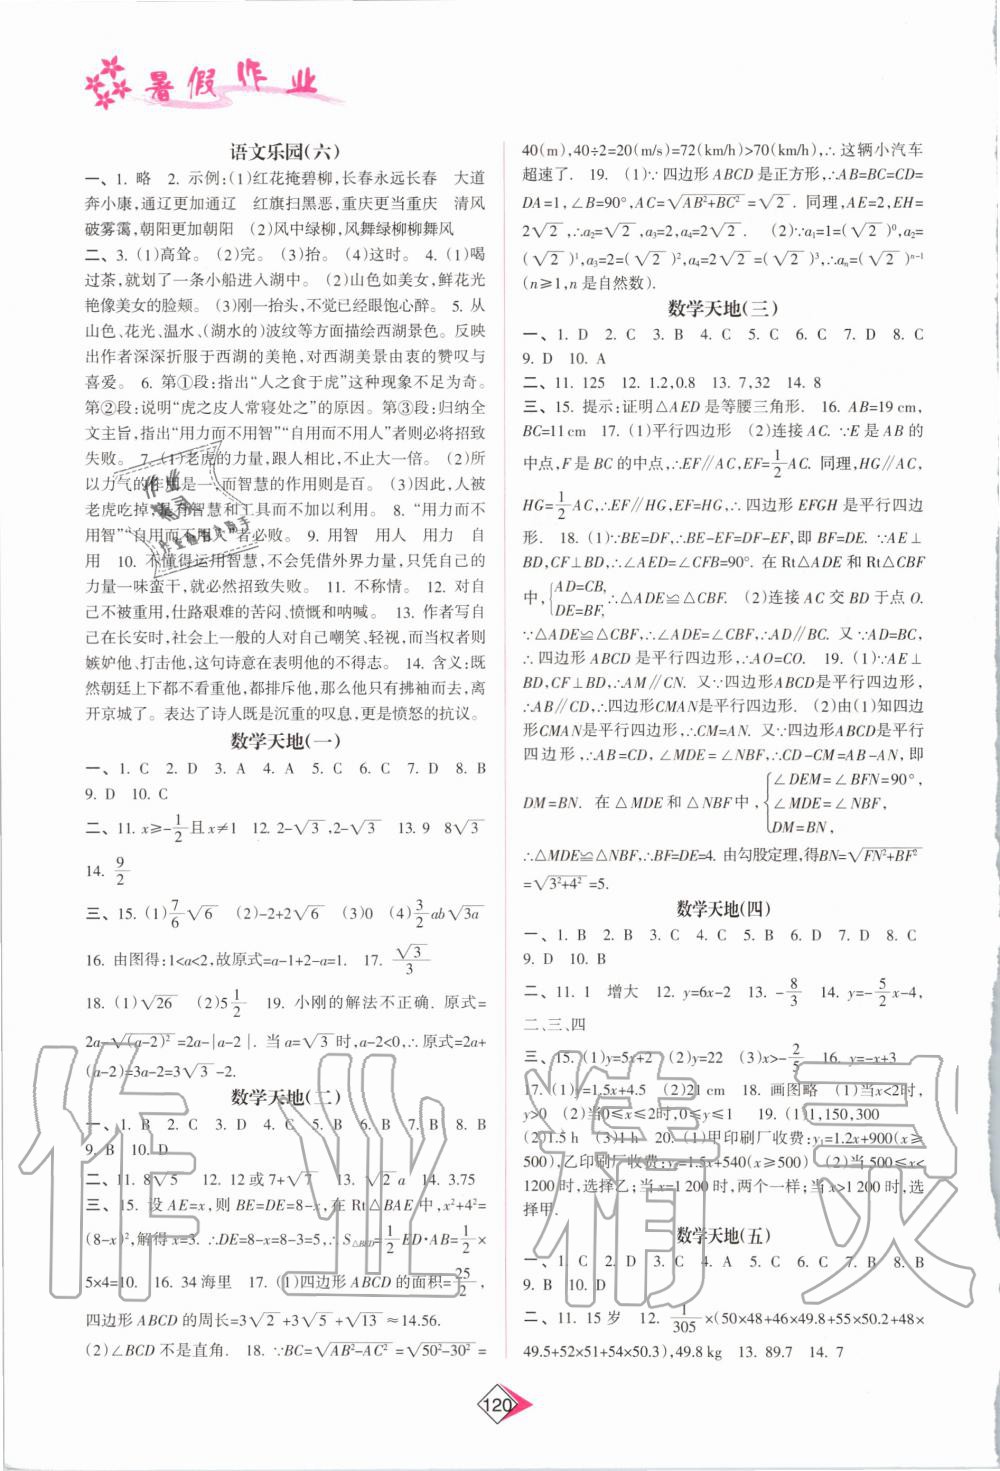 暑假作业
语文乐园(六)
一、1. 略 2. 示例:(1)红花掩碧柳,长春永远长春 大道
奔小康,通辽更加通辽 红旗扫黑恶,重庆更当重庆 清风
破雾霭,朝阳更加朝阳 (2)风中绿柳,风舞绿柳柳舞风
二、3. (1)高耸。 (2)完。 (3)抬。 (4)这时。 4. (1)喝
过茶,就划了一条小船进入湖中。 (2)山色如美女,鲜花光
艳像美女的脸颊。 (3)刚一抬头,不觉已眼饱心醉。 5. 从
山色、花光、温水、(湖水的)波纹等方面描绘西湖景色。反映
出作者深深折服于西湖的美艳,对西湖美景由衷的赞叹与
喜爱。 6. 第①段:指出“人之食于虎”这种现象不足为奇。
第②段:说明“虎之皮人常寝处之”的原因。第③段:归纳全
文主旨,指出“用力而不用智”“自用而不用人”者则必将招致
失败。 7. (1)老虎的力量,跟人相比,不止大一倍。 (2)所
以力气的作用是一,而智慧的作用则是百。 (3)因此,人被
老虎吃掉,是有智慧和工具而不加以利用。 8. “用力而不
用智”“自用而不用人”者必败。 9. 用智 用人 用力 自
用 10. 不懂得运用智慧,不屑倚仗外界力量,只凭自己的
力量一味蛮干,就必然招致失败。 11. 不称情。 12. 对自
己不被重用,仕路艰难的苦闷、愤慨和呐喊。 13. 作者写自
己在长安时,社会上一般的人对自己嘲笑、轻视,而当权者则
嫉妒他、打击他,这句诗意在表明他的不得志。 14. 含义:既
然朝廷上下都不看重他,都排斥他,那么他只有拂袖而去,离
开京城了。表达了诗人既是沉重的叹息,更是愤怒的抗议。
数学天地(一)
一、1. C 2. D 3. A 4. A 5. C 6. C 7. D 8. B
9. D 10. C
二、11. x≥-1/2且x≠1 12. 2-√3,2-√3 13. 9 8√3
14. 9/2
三、15. (1)7/6√6 (2)-2+2√6 (3)0 (4)3/2ab√3a
16. 由图得:1<a<2,故原式=a-1+2-a=1. 17. √3/3
18. (1)√26 (2)5 1/2 19. 小刚的解法不正确. 原式=
2a-√(a-2)²=2a-|a-2|. 当a=√3时,a-2<0,∴原式=2a+
(a-2)=3a-2=3√3-2.
数学天地(二)
一、1. B 2. C 3. C 4. C 5. B 6. B 7. B 8. B
9. B 10. D
二、11. 8√5 12. 12或7+√7 13. √2a 14. 3.75
三、15. 设AE=x,则BE=DE=8-x,在Rt△BAE中,x²+4²=
(8-x)²,解得x=3. ∴DE=8-x=8-3=5,∴S△BED=1/2ED·AB=1/2×
5×4=10. 16. 34海里 17. (1)四边形ABCD的面积=25/2,
四边形ABCD的周长=3√2+3√5+√13≈14.56.
(2)∠BCD不是直角. 18. ∵BC=√AB²-AC²=√50²-30²=
40(m),40÷2=20(m/s)=72(km/h)>70(km/h),∴这辆小汽车
超速了. 19. (1)∵四边形ABCD是正方形,∴AB=BC=CD=
DA=1,∠B=90°,AC=√AB²+BC²=√2. 同理,AE=2,EH=
2√2,∴a₂=√2,a₃=2,a₄=2√2. (2)∵a₁=1=(√2)⁰,a₂=
(√2)¹,a₃=2=(√2)²,a₄=2√2=(√2)³,∴aₙ=(√2)ⁿ⁻¹
(n≥1,n是自然数).
数学天地(三)
一、1. D 2. C 3. B 4. C 5. C 6. C 7. D 8. C
9. D 10. A
二、11. 125 12. 1.2,0.8 13. 7,32 14. 8
三、15. 提示:证明△AED是等腰三角形. 16. AB=19 cm,
BC=11 cm 17. (1)平行四边形 (2)连接AC. ∵E是AB的
中点,F是BC的中点,∴EF∥AC,EF=1/2AC. 同理,HG∥AC,
HG=1/2AC,∴EF∥HG,EF=HG,∴四边形EFGH是平行四边
形. 18. (1)∵BE=DF,∴BE-EF=DF-EF,即BF=DE. ∵AE⊥
BD,CF⊥BD,∴∠AED=∠CFB=90°. 在Rt△ADE和Rt△CBF
中,{AD=CB, DE=BF,∴△ADE≌△CBF. (2)连接AC交BD于点O.
∵△ADE≌△CBF,∴∠ADE=∠CBF,∴AD∥BC. 又∵AD=BC,
∴四边形ABCD是平行四边形,∴AO=CO. 19. (1)∵AE⊥
BD,CF⊥BD,∴AM∥CN. 又∵四边形ABCD是平行四边形,
∴AB∥CD,∴四边形CMAN是平行四边形. (2)由(1)知四边
形CMAN是平行四边形,∴CM=AN. 又∵四边形ABCD是平行
四边形,∴AB=CD,∠MDE=∠NBF,∴CD-CM=AB-AN,即
DM=BN. 在△MDE和△NBF中,{∠DEM=∠BFN=90°, ∠MDE=∠NBF, DM=BN,
∴△MDE≌△NBF,∴BF=DE=4. 由勾股定理,得BN=√FN²+BF²
=√3²+4²=5.
数学天地(四)
一、1. B 2. B 3. C 4. C 5. B 6. D 7. D 8. C
9. D 10. B
二、11. 1 增大 12. y=6x-2 13. -8/3 14. y=-5/2x-4,
二、三、四
三、15. (1)y=5x+2 (2)y=22 (3)x>-2/5 16. y=-x+3
17. (1)y=1.5x+4.5 (2)21 cm 18. 画图略 (1)当x<2时,
y>0 (2)当0≤x≤2时,0≤y≤1 19. (1)1,150,300
(2)1.5 h (3)1 h 20. (1)甲印刷厂收费:y₁=1.2x+900(x≥
500),乙印刷厂收费:y₂=1.5x+540(x≥500) (2)当500≤x<
1200时,选择乙;当x=1 200时,两个一样;当x>1 200时,选
择甲.
数学天地(五)
一、1. C 2. D 3. C 4. B 5. C 6. C 7. A 8. B
9. B 10. D
二、11. 15岁 12. 1/305×(50×48+46×49.8+55×50.2+48×
49.5+52×51+54×50.3),49.8 kg 13. 89.7 14. 7
120
作业精灵